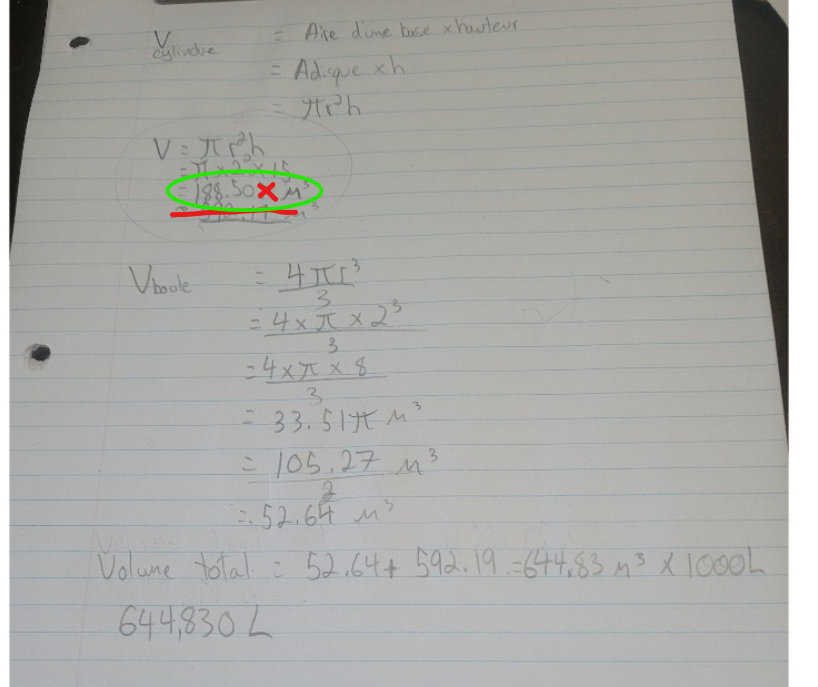 V cylindre = Aire d'une base x hauteur
= Adisque x h
= πr²h
V = π r²h
= π x 2² x 15
= 188.50 x м³
= 592.19 м³
Vboule = 4πr³
3
= 4 x π x 2³
3
= 4 x π x 8
3
= 33.51π м³
= 105.27 м³
2
= 52.64 м³
Volume total = 52.64 + 592.19 = 644,83 м³ x 1000L
644,830 L